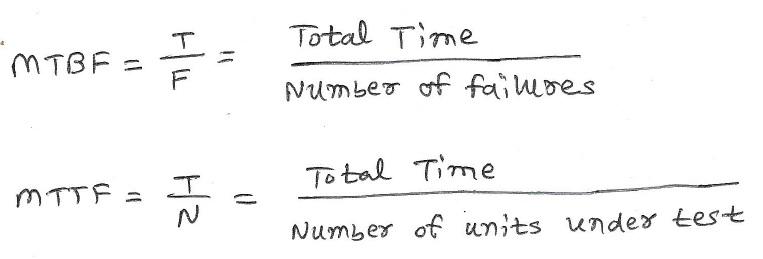 MTBF = T/F = Total Time / Number of failures
MTTF = T/N = Total Time / Number of units under test